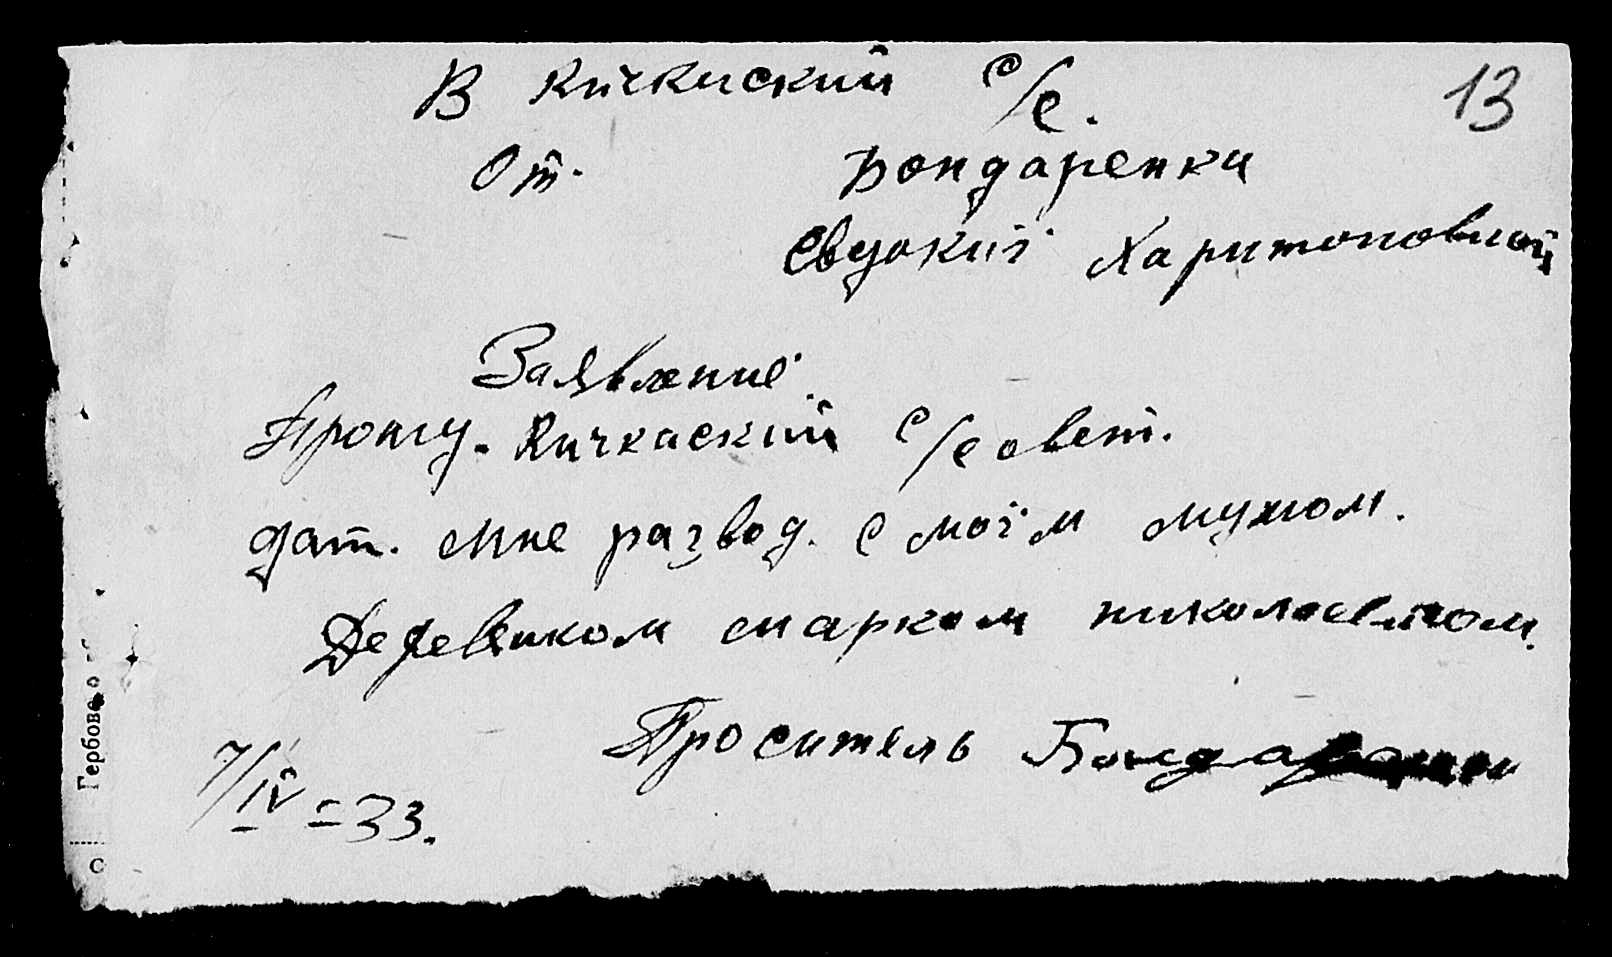 В Кичкиский с/с.
13
От. Бондаренки
Евдокиї Харитоновной
Заявление
Прошу. Кичкаский с/совет.
дат. мне развод. с моїм мужом.
Деревянком марком николаевичом.
Проситель Бондаренки
7/IV = 33.
Гербово